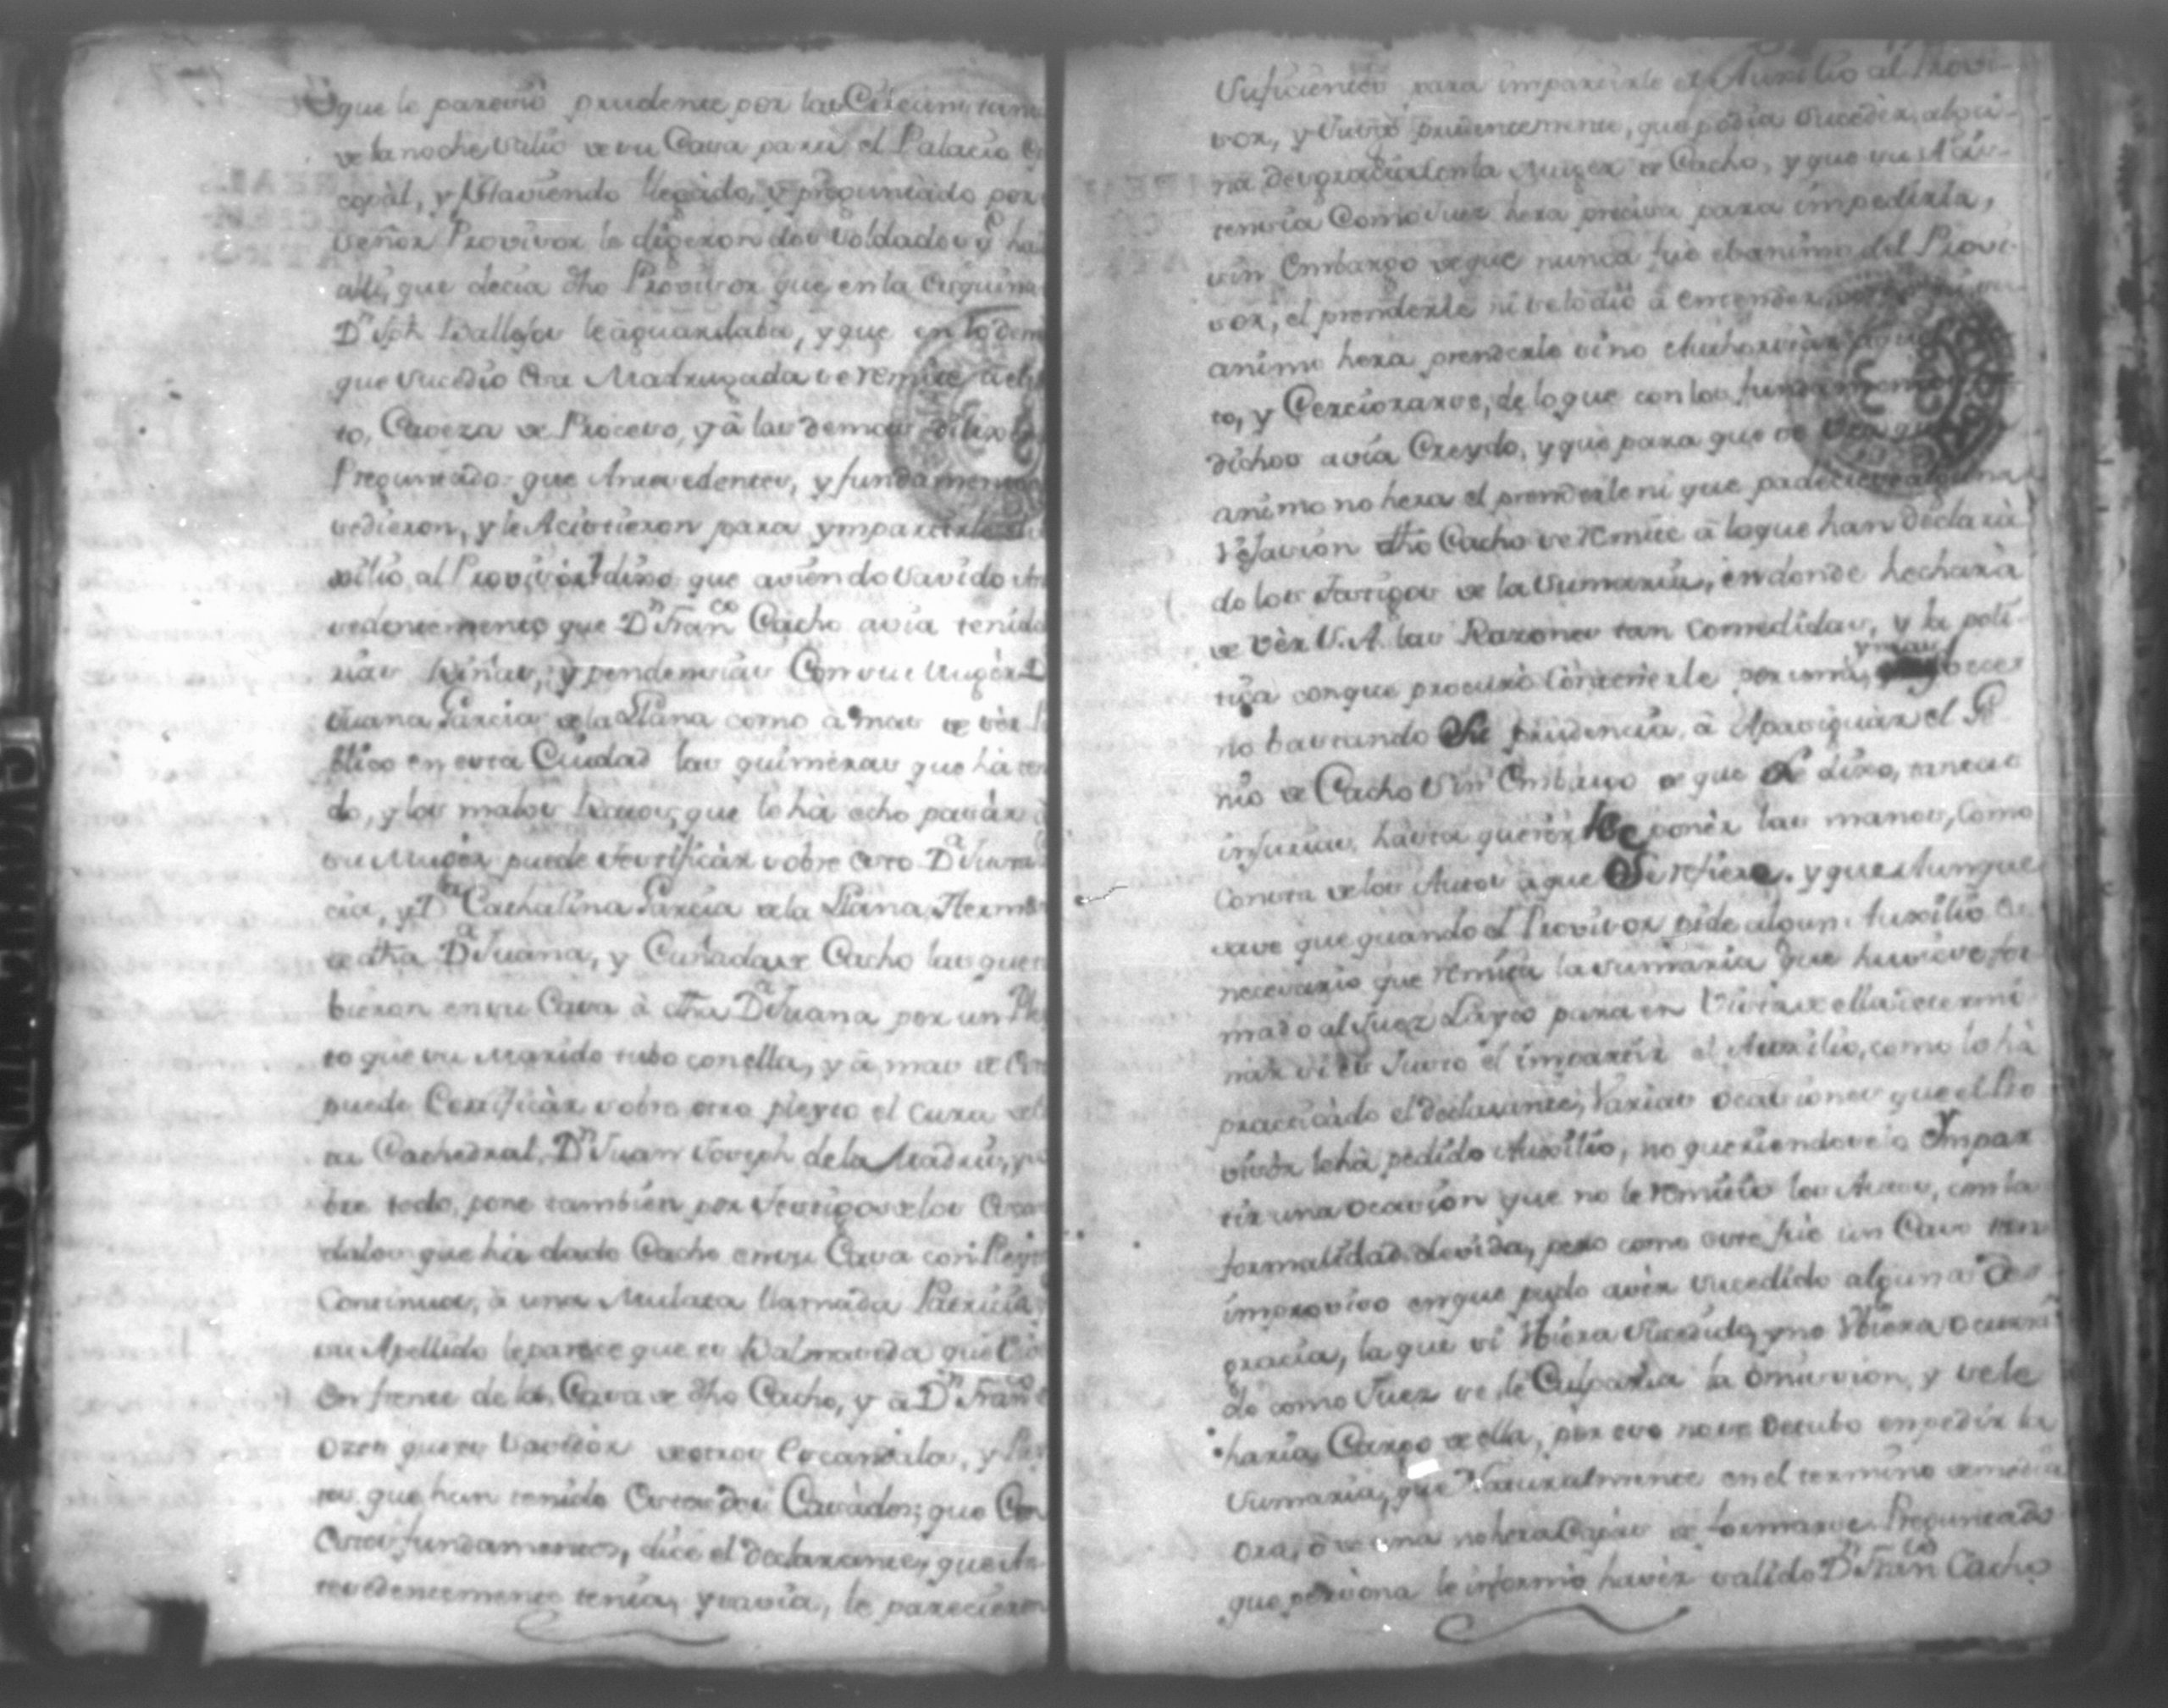 que le pareció prudente por las Circunstan
de la noche salio de su Casa para el Palacio
copal, y haviendo llegado, y preguntado por
señor Provisor le digeron dos soldados q̃ ha
alli, que decia dho Provisor que en la esquina
Dn Jph Ballesa le aguardaba, y que en lo dem
que sucedio esa Madrugada se remite
to, Caveza de Proceso, y à las demas
Preguntado: que Antesedentes, y fundamen
sedieron, y le Acistieron para ympartirle
xilio, al Provisor? dixo que aviendo savido An
sedentemente que Dn Franco Cacho avia tenido
rias Riñas, y pendensias Con su Muger
Juana Garcia de la Llana como à mas de ser
blico en esta Ciudad las quimeras que ha ten
do, y los malos tratos, que le ha echo pasàr
su Mugèr puede sertificàr sobre esto Da Juana
cia, y Da Cathalina Garcia de la Llana, Herm
de dha Da Juana, y Cuñada de Cacho las que
bieron en su Casa à dha Da Juana por un Ple
to que su Marido tubo con ella, y à mas de
puede Certificàr sobre otro pleyto el Cura de
ta Cathedral. Dn Juan Joseph de la Madris,
bre todo, pone tambien por testigos de los Esca
dalos que ha dado Cacho en su Casa con Pleyt
Continuos, à una Mulata llamada Patricia
su Apellido le parece que es Balmaseda que
en frente de la Casa de dho Cacho, y à Dn Fran
que es Savedor de otros Escandalos, y
tos que han tenido estos dos Casàdos; que Con
estos fundamentos, dice el declarante, que An
tesedentemente tenia, y savia, le parecieron
suficientes para impartirle el Auxilio al Provi-
sor, y Jusgò prudentemente, que podia sucedèr algu-
na desgracia con la Muger de Cacho, y que su Acis-
tencia Como Juez hera precisa para impedirla,
sin Embargo de que nunca fue el animo del Provi-
sor, el prenderle ni se lo diò à entender,
animo hera prenderle sino
to, y Cerciorarse, de lo que con los fundamentos
dichos avia Creydo, y que para que se vea que
animo no hera el prenderle ni que padeciese alguna
vejacion dho Cacho se remite à lo que han declara
do los testigos de la Sumaria, en donde hecharà
de vèr V.A. las Razones tan comedidas, y la poli-
tica con que procurò Contenerle por una, y mas veces
no bastando su prudencia, à Apasiguàr el Ge
nio de Cacho sin Embargo de que le dixo, tantas
injurias, hasta querèrle ponèr las manos, Como
Consta de los Autos à que se refiere. y que Aunque
save que quando el Provisor pide algun Auxilio es
necesario que remita la sumaria que huviese for
mado al Juez Layco para en Vista de ella determi
nàr si es Justo el impartir el Auxilio, como lo hà
practicàdo el declarante, Varias ocasiones que el Pro
visòr le ha pedido Auxilio, no queriendoselo Ympar
tir una ocasion que no le remitio los Autos, con la
formalidad devida, pero como este fuè un Caso tan
improviso en que pudo avèr sucedido alguna des
gracia, la que si Ubiera sucedido, y no Ubiera ocurri
do como Juez se le Culparia la omission, y se le
haria Cargo de ella, por eso no se Detubo en pedir la
Sumaria, que Naturalmente en el termino de media
ora, ò de una no hera Capàs de formarse. Preguntado
que persona le informò havèr salido Dn Franco Cacho